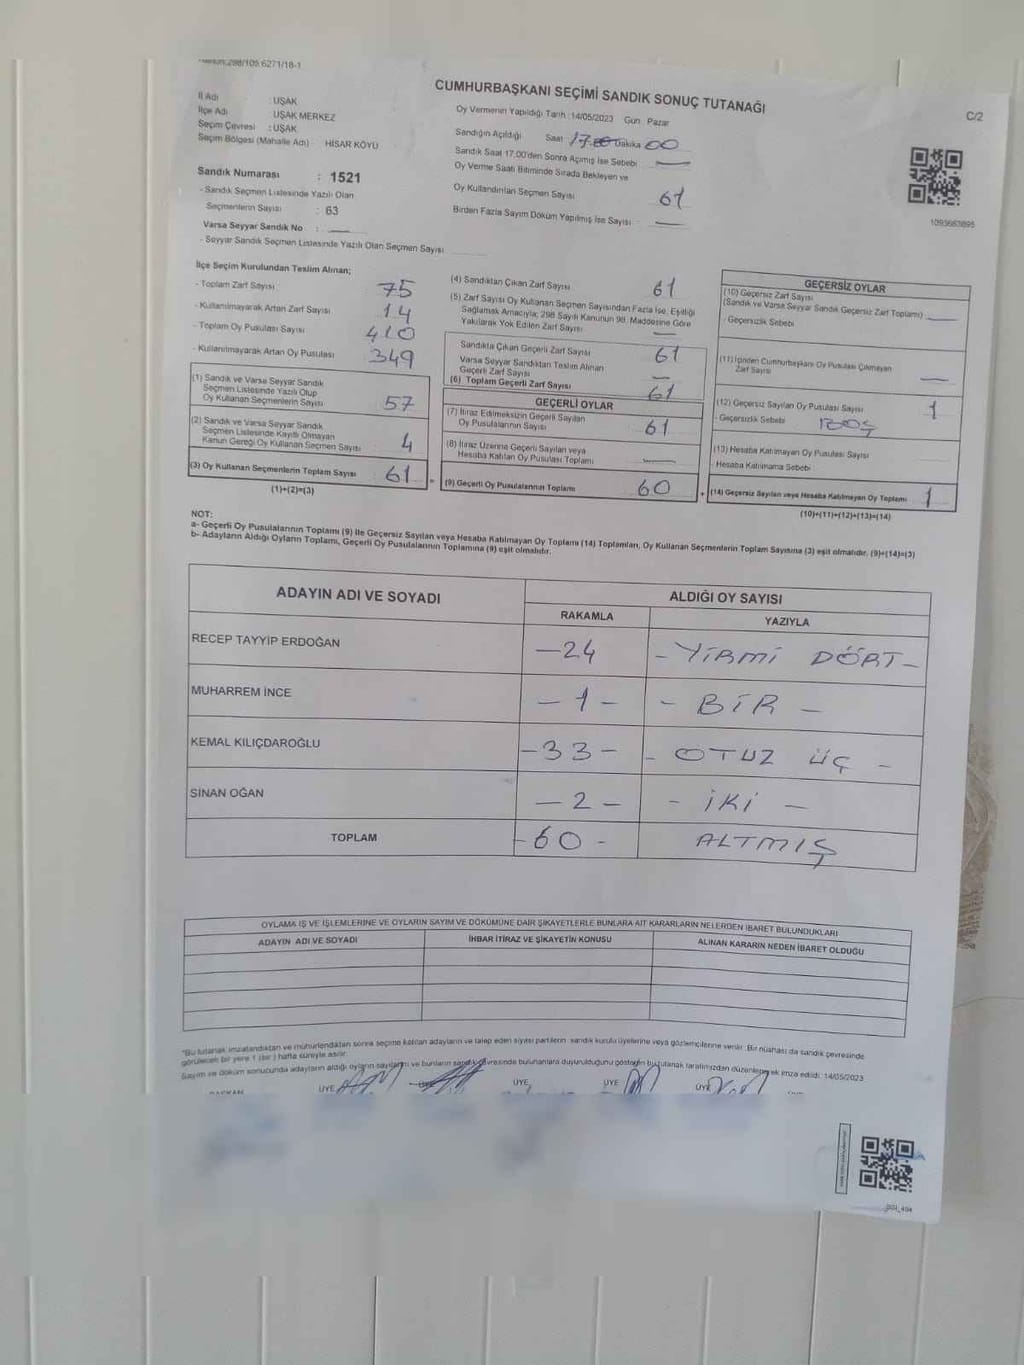 CUMHURBAŞKANI SEÇİMİ SANDIK SONUÇ TUTANAĞI
C/2
İl Adı : UŞAK
İlçe Adı UŞAK MERKEZ
Seçim Çevresi : UŞAK
Seçim Bölgesi (Mahalle Adı) HİSAR KÖYÜ
Oy Vermenin Yapıldığı Tarih :14/05/2023 Gün : Pazar
Sandığın Açıldığı Saat 17.00 Dakika 00
Sandık Saat 17:00'den Sonra Açımış İse Sebebi —
Oy Verme Saati Bitiminde Sırada Bekleyen ve
Oy Kullandırılan Seçmen Sayısı 61
Birden Fazla Sayım Döküm Yapılmış İse Sayısı —
1093683895
Sandık Numarası : 1521
- Sandık Seçmen Listesinde Yazılı Olan
Seçmenlerin Sayısı : 63
Varsa Seyyar Sandık No : —
- Seyyar Sandık Seçmen Listesinde Yazılı Olan Seçmen Sayısı
İlçe Seçim Kurulundan Teslim Alınan;
- Toplam Zarf Sayısı 75
- Kullanılmayarak Artan Zarf Sayısı 14
- Toplam Oy Pusulası Sayısı 410
- Kullanılmayarak Artan Oy Pusulası 349
(1) Sandık ve Varsa Seyyar Sandık
Seçmen Listesinde Yazılı Olup
Oy Kullanan Seçmenlerin Sayısı 57
(2) Sandık ve Varsa Seyyar Sandık
Seçmen Listesinde Kayıtlı Olmayan
Kanun Gereği Oy Kullanan Seçmen Sayısı 4
(3) Oy Kullanan Seçmenlerin Toplam Sayısı 61
(1)+(2)=(3)
(4) Sandıktan Çıkan Zarf Sayısı 61
(5) Zarf Sayısı Oy Kullanan Seçmen Sayısından Fazla İse, Eşitliği
Sağlamak Amacıyla; 298 Sayılı Kanunun 98. Maddesine Göre
Yakılarak Yok Edilen Zarf Sayısı —
Sandıkta Çıkan Geçerli Zarf Sayısı 61
Varsa Seyyar Sandıktan Teslim Alınan
Geçerli Zarf Sayısı —
(6) Toplam Geçerli Zarf Sayısı 61
GEÇERLİ OYLAR
(7) İtiraz Edilmeksizin Geçerli Sayılan
Oy Pusulalarının Sayısı 61
(8) İtiraz Üzerine Geçerli Sayılan veya
Hesaba Katılan Oy Pusulası Toplamı —
= (9) Geçerli Oy Pusulalarının Toplamı 60
GEÇERSİZ OYLAR
(10) Geçersiz Zarf Sayısı
(Sandık ve Varsa Seyyar Sandık Geçersiz Zarf Toplamı) —
- Geçersizlik Sebebi
(11) İçinden Cumhurbaşkanı Oy Pusulası Çıkmayan
Zarf Sayısı —
(12) Geçersiz Sayılan Oy Pusulası Sayısı 1
- Geçersizlik Sebebi BOŞ
(13) Hesaba Katılmayan Oy Pusulası Sayısı
- Hesaba Katılmama Sebebi
+ (14) Geçersiz Sayılan veya Hesaba Katılmayan Oy Toplamı 1
(10)+(11)+(12)+(13)=(14)
NOT:
a- Geçerli Oy Pusulalarının Toplamı (9) İle Geçersiz Sayılan veya Hesaba Katılmayan Oy Toplamı (14) Toplamları, Oy Kullanan Seçmenlerin Toplam Sayısına (3) eşit olmalıdır. (9)+(14)=(3)
b- Adayların Aldığı Oyların Toplamı, Geçerli Oy Pusulalarının Toplamına (9) eşit olmalıdır.
ADAYIN ADI VE SOYADI ALDIĞI OY SAYISI
RAKAMLA YAZIYLA
RECEP TAYYİP ERDOĞAN —24 - YİRMİ DÖRT -
MUHARREM İNCE — 1 - - BİR —
KEMAL KILIÇDAROĞLU -33- - OTUZ ÜÇ -
SİNAN OĞAN — 2 — - İKİ —
TOPLAM -60- ALTMIŞ
OYLAMA İŞ VE İŞLEMLERİNE VE OYLARIN SAYIM VE DÖKÜMÜNE DAİR ŞİKAYETLERLE BUNLARA AİT KARARLARIN NELERDEN İBARET BULUNDUKLARI
ADAYIN ADI VE SOYADI İHBAR İTİRAZ VE ŞİKAYETİN KONUSU ALINAN KARARIN NEDEN İBARET OLDUĞU
*Bu tutanak imzalandıktan ve mühürlendikten sonra seçime katılan adayların ve talep eden siyasi partilerin sandık kurulu üyelerine veya gözlemcilerine verilir. Bir nüshası da sandık çevresinde
görülecek bir yere 1 (bir) hafta süreyle asılır.
Sayım ve döküm sonucunda adayların aldığı oyların sayılarını ve bunların sandık çevresinde bulunanlara duyurulduğunu gösteren bu tutanak tarafımızdan düzenlenerek imza edildi. 14/05/2023
BAŞKAN ÜYE ÜYE ÜYE ÜYE